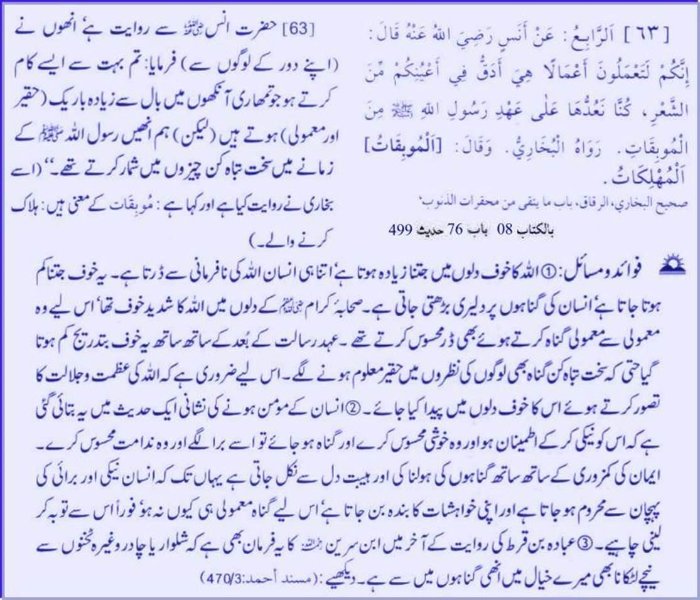 [٦٣] اَلرَّابِعُ: عَنْ أَنَسٍ رَضِيَ اللهُ عَنْهُ قَالَ:
إِنَّكُمْ لَتَعْمَلُونَ أَعْمَالًا هِيَ أَدَقُّ فِي أَعْيُنِكُمْ مِّنَ
الشَّعْرِ، كُنَّا نَعُدُّهَا عَلٰى عَهْدِ رَسُولِ اللهِ ﷺ مِنَ
الْمُوبِقَاتِ. رَوَاهُ الْبُخَارِيُّ. وَقَالَ: [اَلْمُوبِقَاتُ]
اَلْمُهْلِكَاتُ.
صحيح البخاري، الرقاق، باب ما يتقى من محقرات الذنوب،
بالكتاب 08 باب 76 حديث 499
[63] حضرت انس رضی اللہ عنہ سے روایت ہے، انھوں نے
(اپنے دور کے لوگوں سے) فرمایا: تم بہت سے ایسے کام
کرتے ہو جو تمھاری آنکھوں میں بال سے زیادہ باریک (حقیر
اور معمولی) ہوتے ہیں (لیکن) ہم انھیں رسول اللہ ﷺ کے
زمانے میں سخت تباہ کن چیزوں میں شمار کرتے تھے۔'' (اسے
بخاری نے روایت کیا ہے اور کہا ہے: مُوبِقَات کے معنی ہیں: ہلاک
کرنے والے۔)
فوائد ومسائل: ① اللہ کا خوف دلوں میں جتنا زیادہ ہوتا ہے، اتنا ہی انسان اللہ کی نافرمانی سے ڈرتا ہے۔ یہ خوف جتنا کم
ہوتا جاتا ہے، انسان کی گناہوں پر دلیری بڑھتی جاتی ہے۔ صحابۂ کرام رضی اللہ عنہم کے دلوں میں اللہ کا شدید خوف تھا، اس لیے وہ
معمولی سے معمولی گناہ کرتے ہوئے بھی ڈر محسوس کرتے تھے۔ عہد رسالت کے بُعد کے ساتھ ساتھ یہ خوف بتدریج کم ہوتا
گیا حتی کہ سخت تباہ کن گناہ بھی لوگوں کی نظروں میں حقیر معلوم ہونے لگے۔ اس لیے ضروری ہے کہ اللہ کی عظمت و جلالت کا
تصور کرتے ہوئے اس کا خوف دلوں میں پیدا کیا جائے۔ ② انسان کے مومن ہونے کی نشانی ایک حدیث میں یہ بتائی گئی
ہے کہ اس کو نیکی کر کے اطمینان ہو اور وہ خوشی محسوس کرے اور گناہ ہو جائے تو اسے برا لگے اور وہ ندامت محسوس کرے۔
ایمان کی کمزوری کے ساتھ ساتھ گناہوں کی ہولناکی اور ہیبت دل سے نکل جاتی ہے یہاں تک کہ انسان نیکی اور برائی کی
پہچان سے محروم ہو جاتا ہے اور اپنی خواہشات کا بندہ بن جاتا ہے، اس لیے گناہ معمولی ہی کیوں نہ ہو، فوراً اس سے توبہ کر
لینی چاہیے۔ ③ عبادہ بن قرط کی روایت کے آخر میں ابن سیرین رحمہ اللہ کا یہ فرمان بھی ہے کہ شلوار یا چادر وغیرہ ٹخنوں سے
نیچے لٹکانا بھی میرے خیال میں انھی گناہوں میں سے ہے۔ دیکھیے: (مسند أحمد: 470/3)